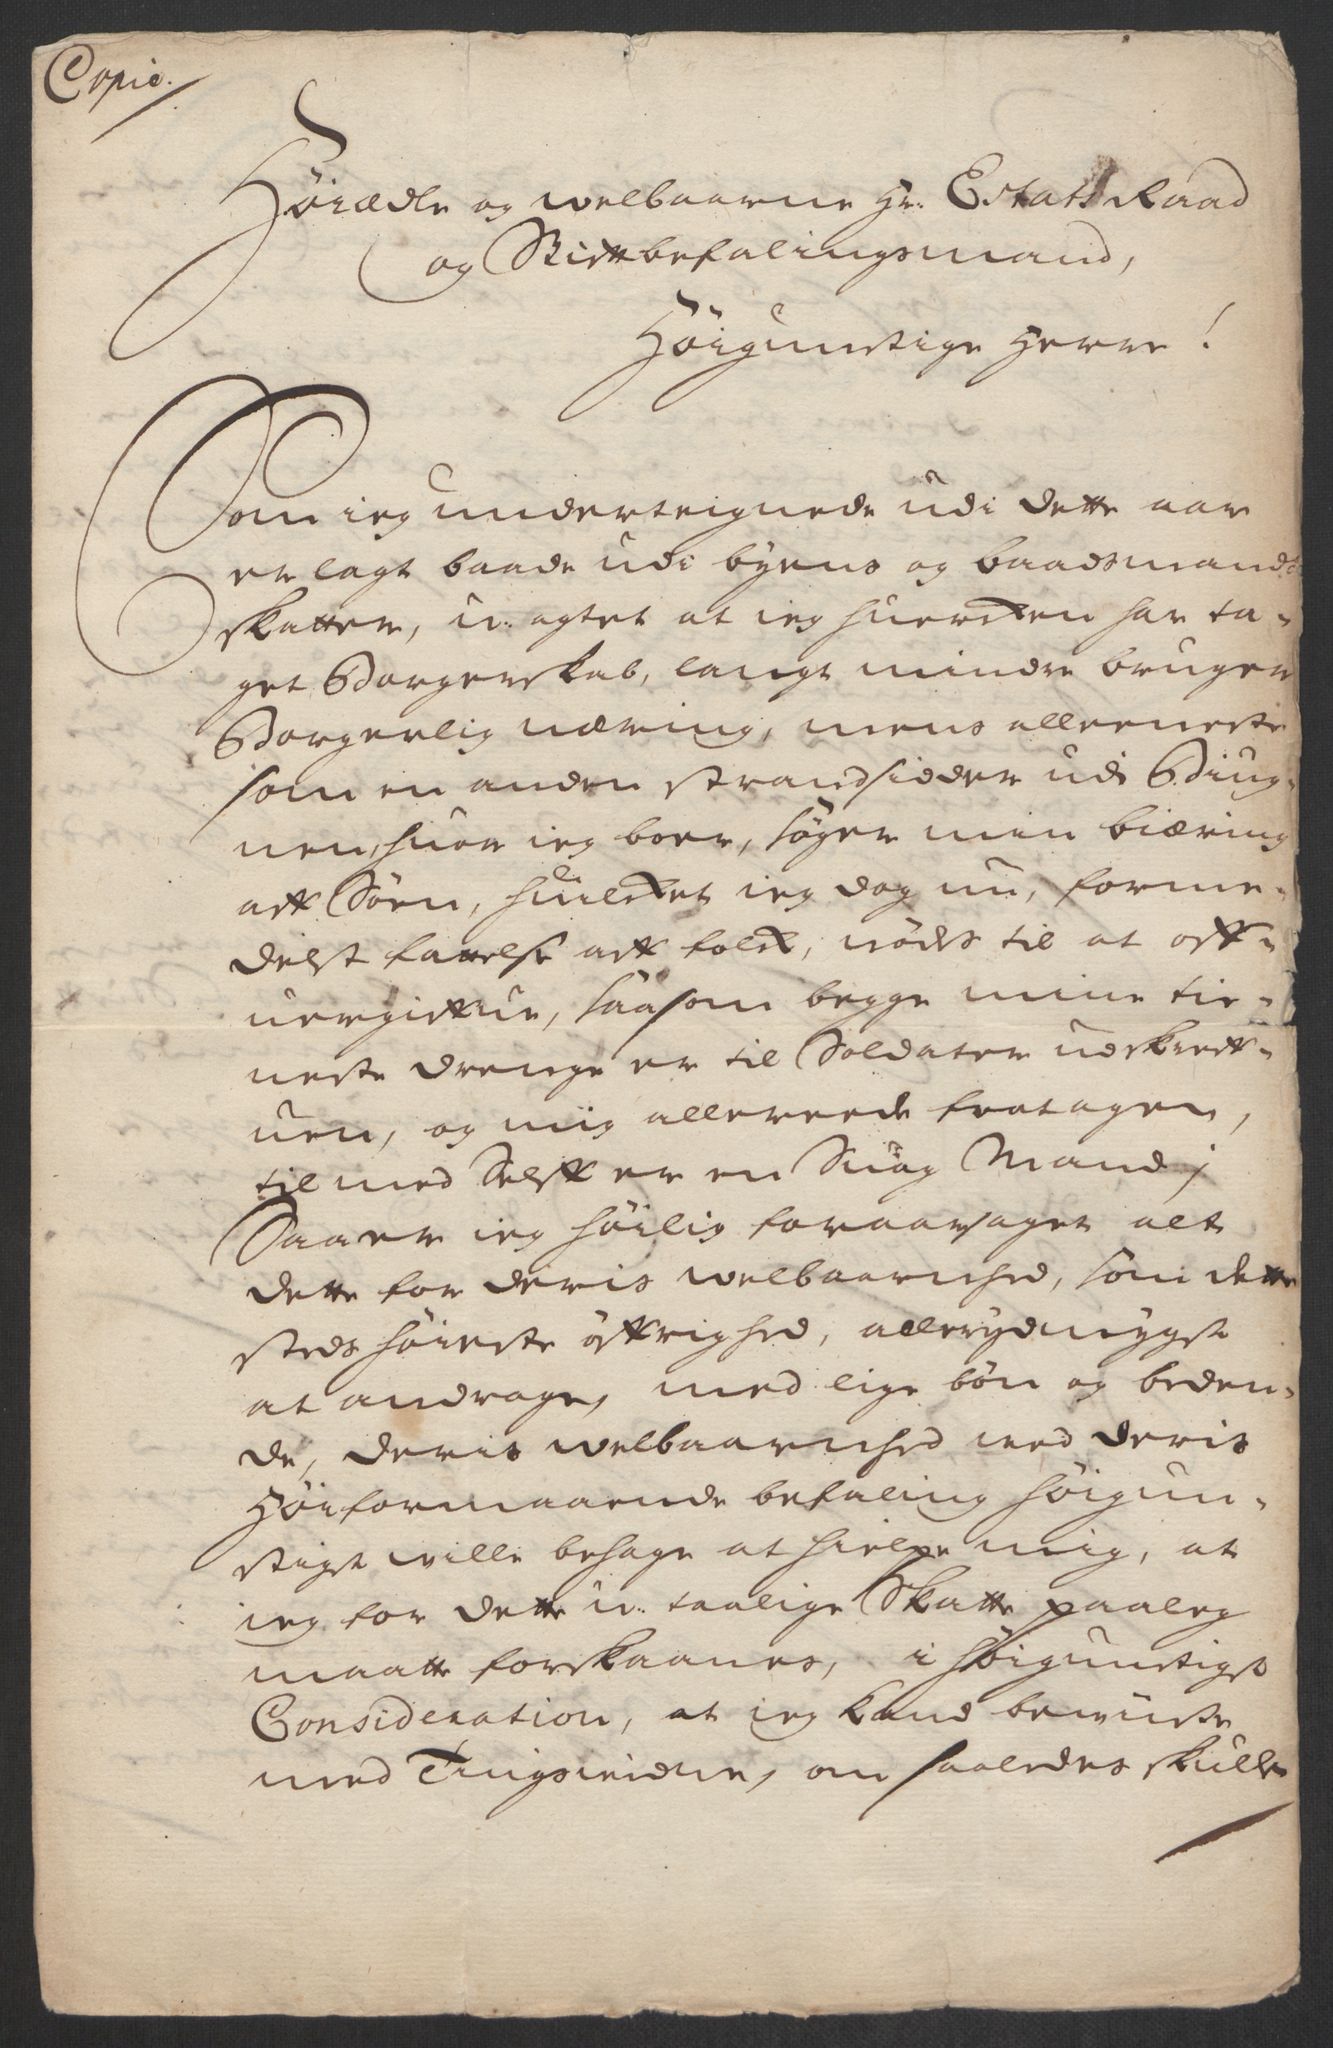 Copie.
Höiædle og welbaarne Hr. Estats Raad
og Stiftbefalingsmand,
Höigunstige Herre!
Som ieg underteignede udi dette aar
er lagt baade udi byens og baadsmands
skatter, u-agtet at ieg huercken har ta-
get Borgerskab, langt mindre bruger
Borgerlig næring, mens alleeneste
som en anden strandsidder udi Biug-
nen, huor ieg boer, söger min biæring
aff Söen, huilcket ieg dog nu, forme-
delst fattelse aff folck, nödes til at off-
uergiffue, saasom begge mine tie-
neste drenge er til Soldater udskreff-
uen, og mig allereede fratagen,
til med Selff er en Suag Mand;
Saa er ieg höilig foraarsaget alt
dette for deris welbaarnhed, som dette
steds höieste öffrighed, allerydmygst
at andrage, med lige bön og beden-
de, deris welbaarnhed ved deris
Höiformaaende befaling höigun-
stigst ville behage at hielpe mig, at
ieg for dette u-taalige Skatte paaleg
maatte forskaanes, i höigunstigst
Consideration, at ieg kand beviiste
med Tingsvidne, om saaledes skulle